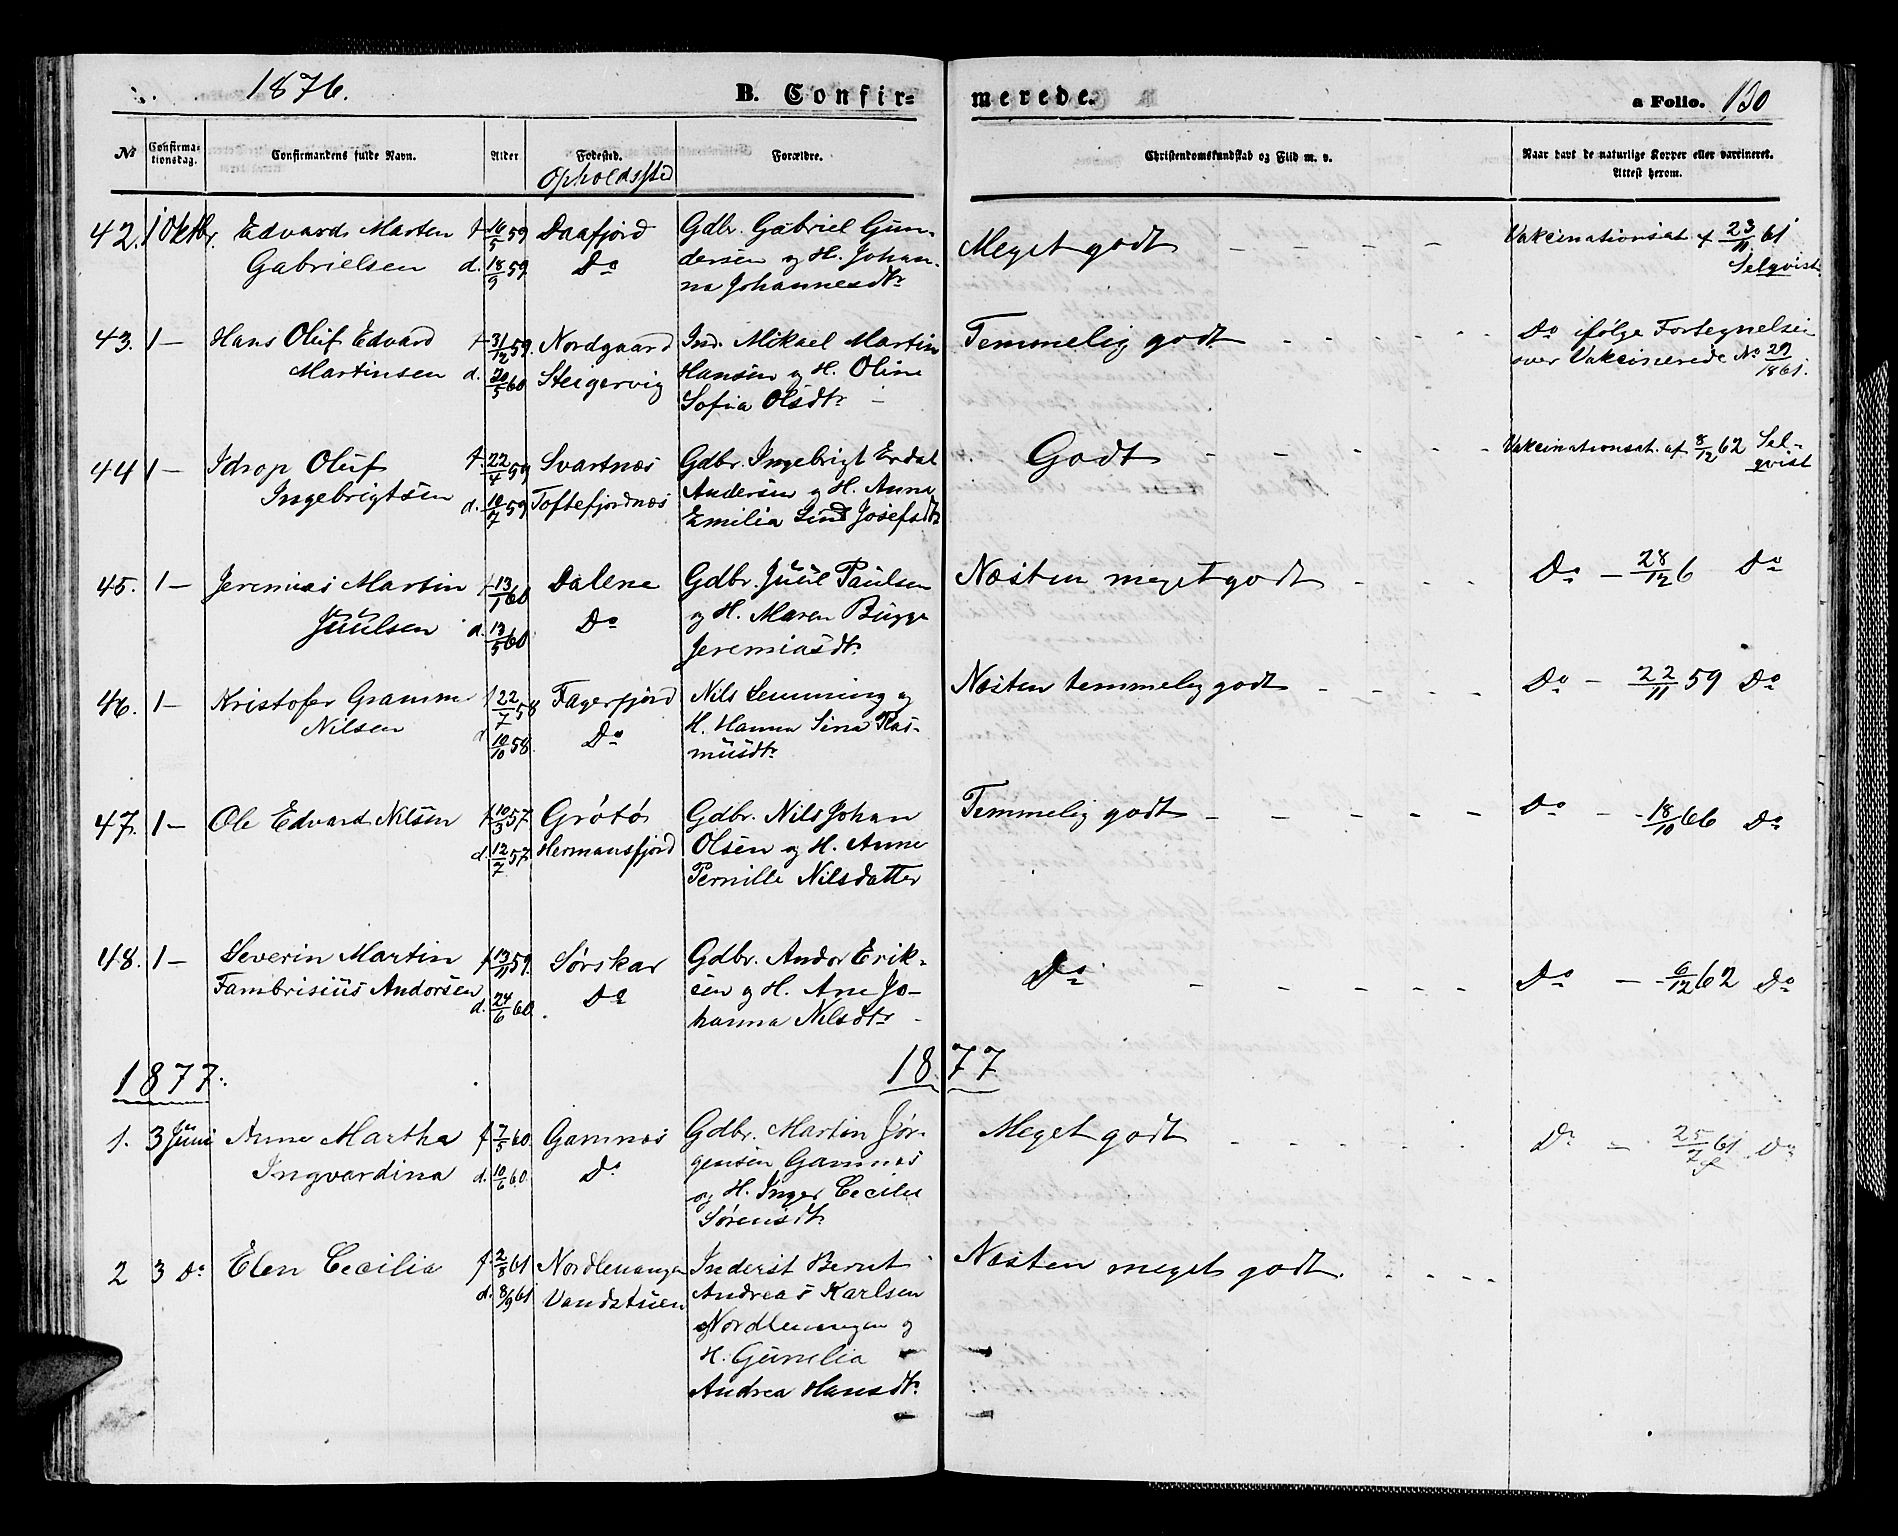 1876.
B. Confir=
merede.
a Folio. 130
No
Confirma-
tionsdag.
Confirmandens fulde Navn.
Alder
Fødested.
Opholdssted
Forældre.
Christendomskundskab og Flid m. v.
Naar havt de naturlige Kopper eller vaccineret.
Attest herom.
42. 1 Oktbr. Edvard Marten f 16/5 59 Daafjord Gdbr. Gabriel Gun- Meget godt Vakcinationsat. af 23/11 61
Gabrielsen d. 18/9 59 Do dersen og H. Johan- Selqvist
na Johannesdtr
43. 1 — Hans Oluf Edvard f 31/12 59. Nordgaard Ind. Mikael Martin Temmelig godt Do ifølge Fortegnelsen
Martinsen d. 20/5 60 Steigervig Hansen og H. Oline over Vakcinerede No 29/1861.
Sofia Olsdtr
44 1 — Idrop Oluf f. 22/4 59 Svartnæs Gdbr. Ingebrigt Erdal Godt Vakcinationsat. af 8/12 62 Sel-
Ingebrigtsen d. 10/7 59 Toftefjordnæs Andersen og H. Anna qvist
Emilia Lind Josefsdtr
45. 1 — Jeremias Martin f 13/1 60 Dalene Gdbr. Juul Paulsen Næsten meget godt Do — 28/12 6 Do
Juulsen d. 13/5 60 Do og H. Maren Bugge
Jeremiasdtr.
46. 1 — Kristofer Gramm f 22/7 58 Fagerfjord Nils Lemming og Næsten temmelig godt Do — 22/11 59 Do
Nilsen d 10/10 58. Do H. Hanna Sina Ras-
musdtr
47. 1 — Ole Edvard Nilsen f. 10/3 57. Grøtø Gdbr. Nils Johan Temmelig godt Do — 18/10 66 Do
d. 12/7 57. Hermansfjord Olsen og H. Anne
Pernille Nilsdatter
48. 1 — Severin Martin f 13/11 59. Sørskar Gdbr. Andor Erik- Do Do — 6/12 62 Do
Fambrisius Andorsen d. 24/6 60. Do sen og H. Ane Jo-
hanna Nilsdtr
1877. 1877
1. 3 Juni Anne Martha f 7/5 60 Gamnæs Gdbr. Martin Jør- Meget godt Do — 25/7 61 Do
Ingvardina d. 10/6 60. Do gensen Gamnæs
og H. Inger Cecilie
Sørensdtr
2 3 Do Elen Cecilia f. 2/8 61 Nordlenangen Inderst Bernt Næsten meget godt.
d. 8/9 61 Vandstuen Andreas Karlsen
Nordlenangen og
H. Gunelia
Andrea Hansdtr.